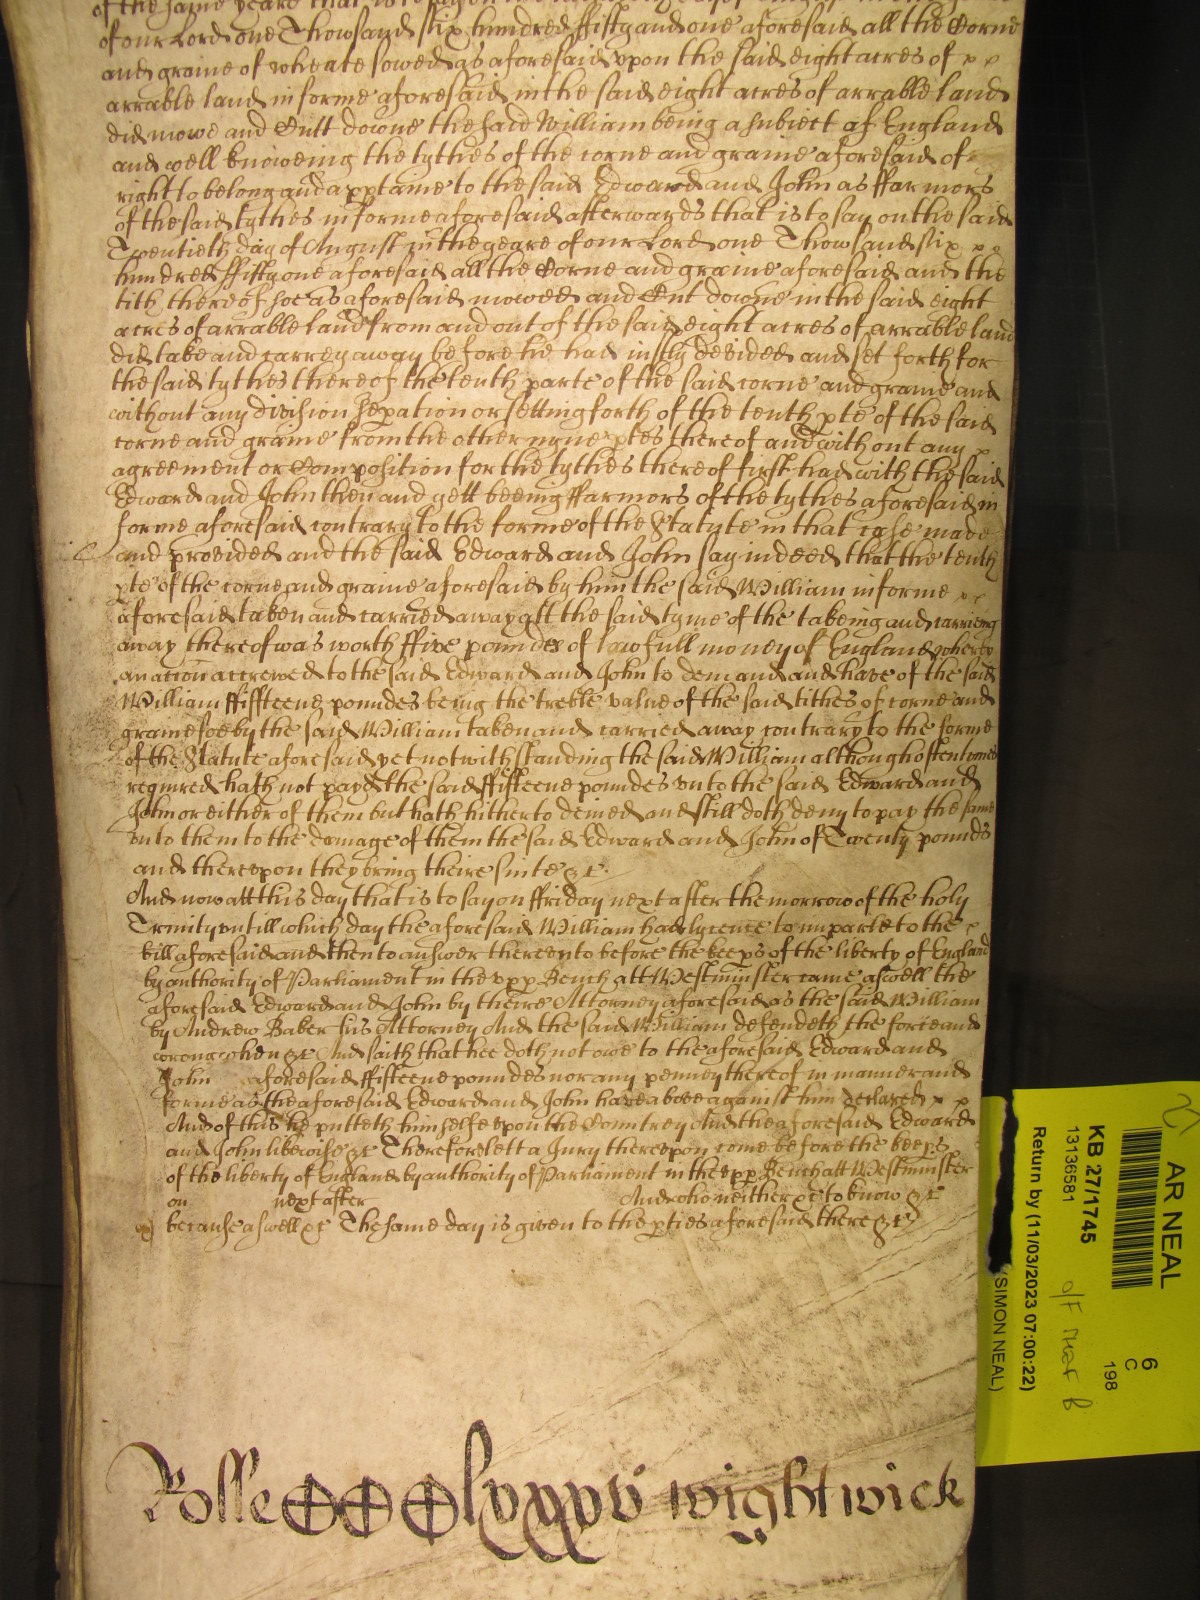 of the same yeare that is to say on
of our Lord one Thowsand six hundred ffifty and one aforesaid all the Corne
and graine of wheate sowed as aforesaid vpon the said eight acres of
arrable land in forme aforesaid in the said eight acres of arrable land
did mowe and Cutt downe the said William being a subiect of England
and well knoweing the tythes of the corne and graine aforesaid of
right to belong and apptaine to the said Edward and John as ffarmors
of the said tythes in forme aforesaid afterwards that is to say on the said
Twentieth day of August in the yeare of our Lord one Thowsand six
hundred ffifty one aforesaid all the Corne and graine aforesaid and the
tith thereof soe as aforesaid mowed and Cut downe in the said eight
acres of arrable land from and out of the said eight acres of arrable land
did take and carrey away before he had iustly devided and set forth for
the said tythes thereof the tenth parte of the said corne and graine and
without any division sepation or setting forth of the tenth pte of the said
corne and graine from the other nyne ptes thereof and without any
agreement or Composition for the tythes thereof first had with the said
Edward and John then and yett beeing ffarmors of the tythes aforesaid in
forme aforesaid contrary to the forme of the Statute in that case made
and provided and the said Edward and John say indeed that the tenth
pte of the corne and graine aforesaid by him the said William in forme
aforesaid taken and carried away att the said tyme of the takeing and carrieng
away thereof was worth ffive poundes of lawfull money of England whereby
an action accrewed to the said Edward and John to demand and have of the said
William ffiffteene poundes being the treble value of the said tithes of corne and
graine soe by the said William taken and carried away contrary to the forme
of the Statute aforesaid yet notwithstanding the said William although oftentimes
required hath not payd the said ffifteene poundes vnto the said Edward and
John or either of them but hath hitherto denied and still doth deny to pay the same
vnto them to the damage of them the said Edward and John of Twenty pounds
and therevpon they bring theire suite &c.
And now att this day that is to say on ffriday next after the morrow of the holy
Trinity vntill which day the aforesaid William had lycence to imparle to the
bill aforesaid and then to answer therevnto before the keeps of the liberty of England
by authority of Parliament in the vpp Bench att Westminster came aswell the
aforesaid Edward and John by theire Attorney aforesaid as the said William
by Andrew Baker his Attorney And the said William defendeth the force and
wrong when &c And saith that hee doth not owe to the aforesaid Edward and
John aforesaid ffifteene poundes nor any penney thereof in manner and
forme as the aforesaid Edward and John have above against him declared
And of this he putteth himselfe vpon the Countrey And the aforesaid Edward
and John likewise &c Therefore lett a Jury therevpon come before the keeps
of the liberty of England by authority of Parliament in the vpp Bench att Westminster
on next after And who neither &c to know &c
because aswell &c The same day is given to the pties aforesaid there &c
Rolle CCClxxxv wightwick
AR NEAL
6
C
198
KB 27/1745
13136581
Return by (11/03/2023 07:00:22)
(SIMON NEAL)